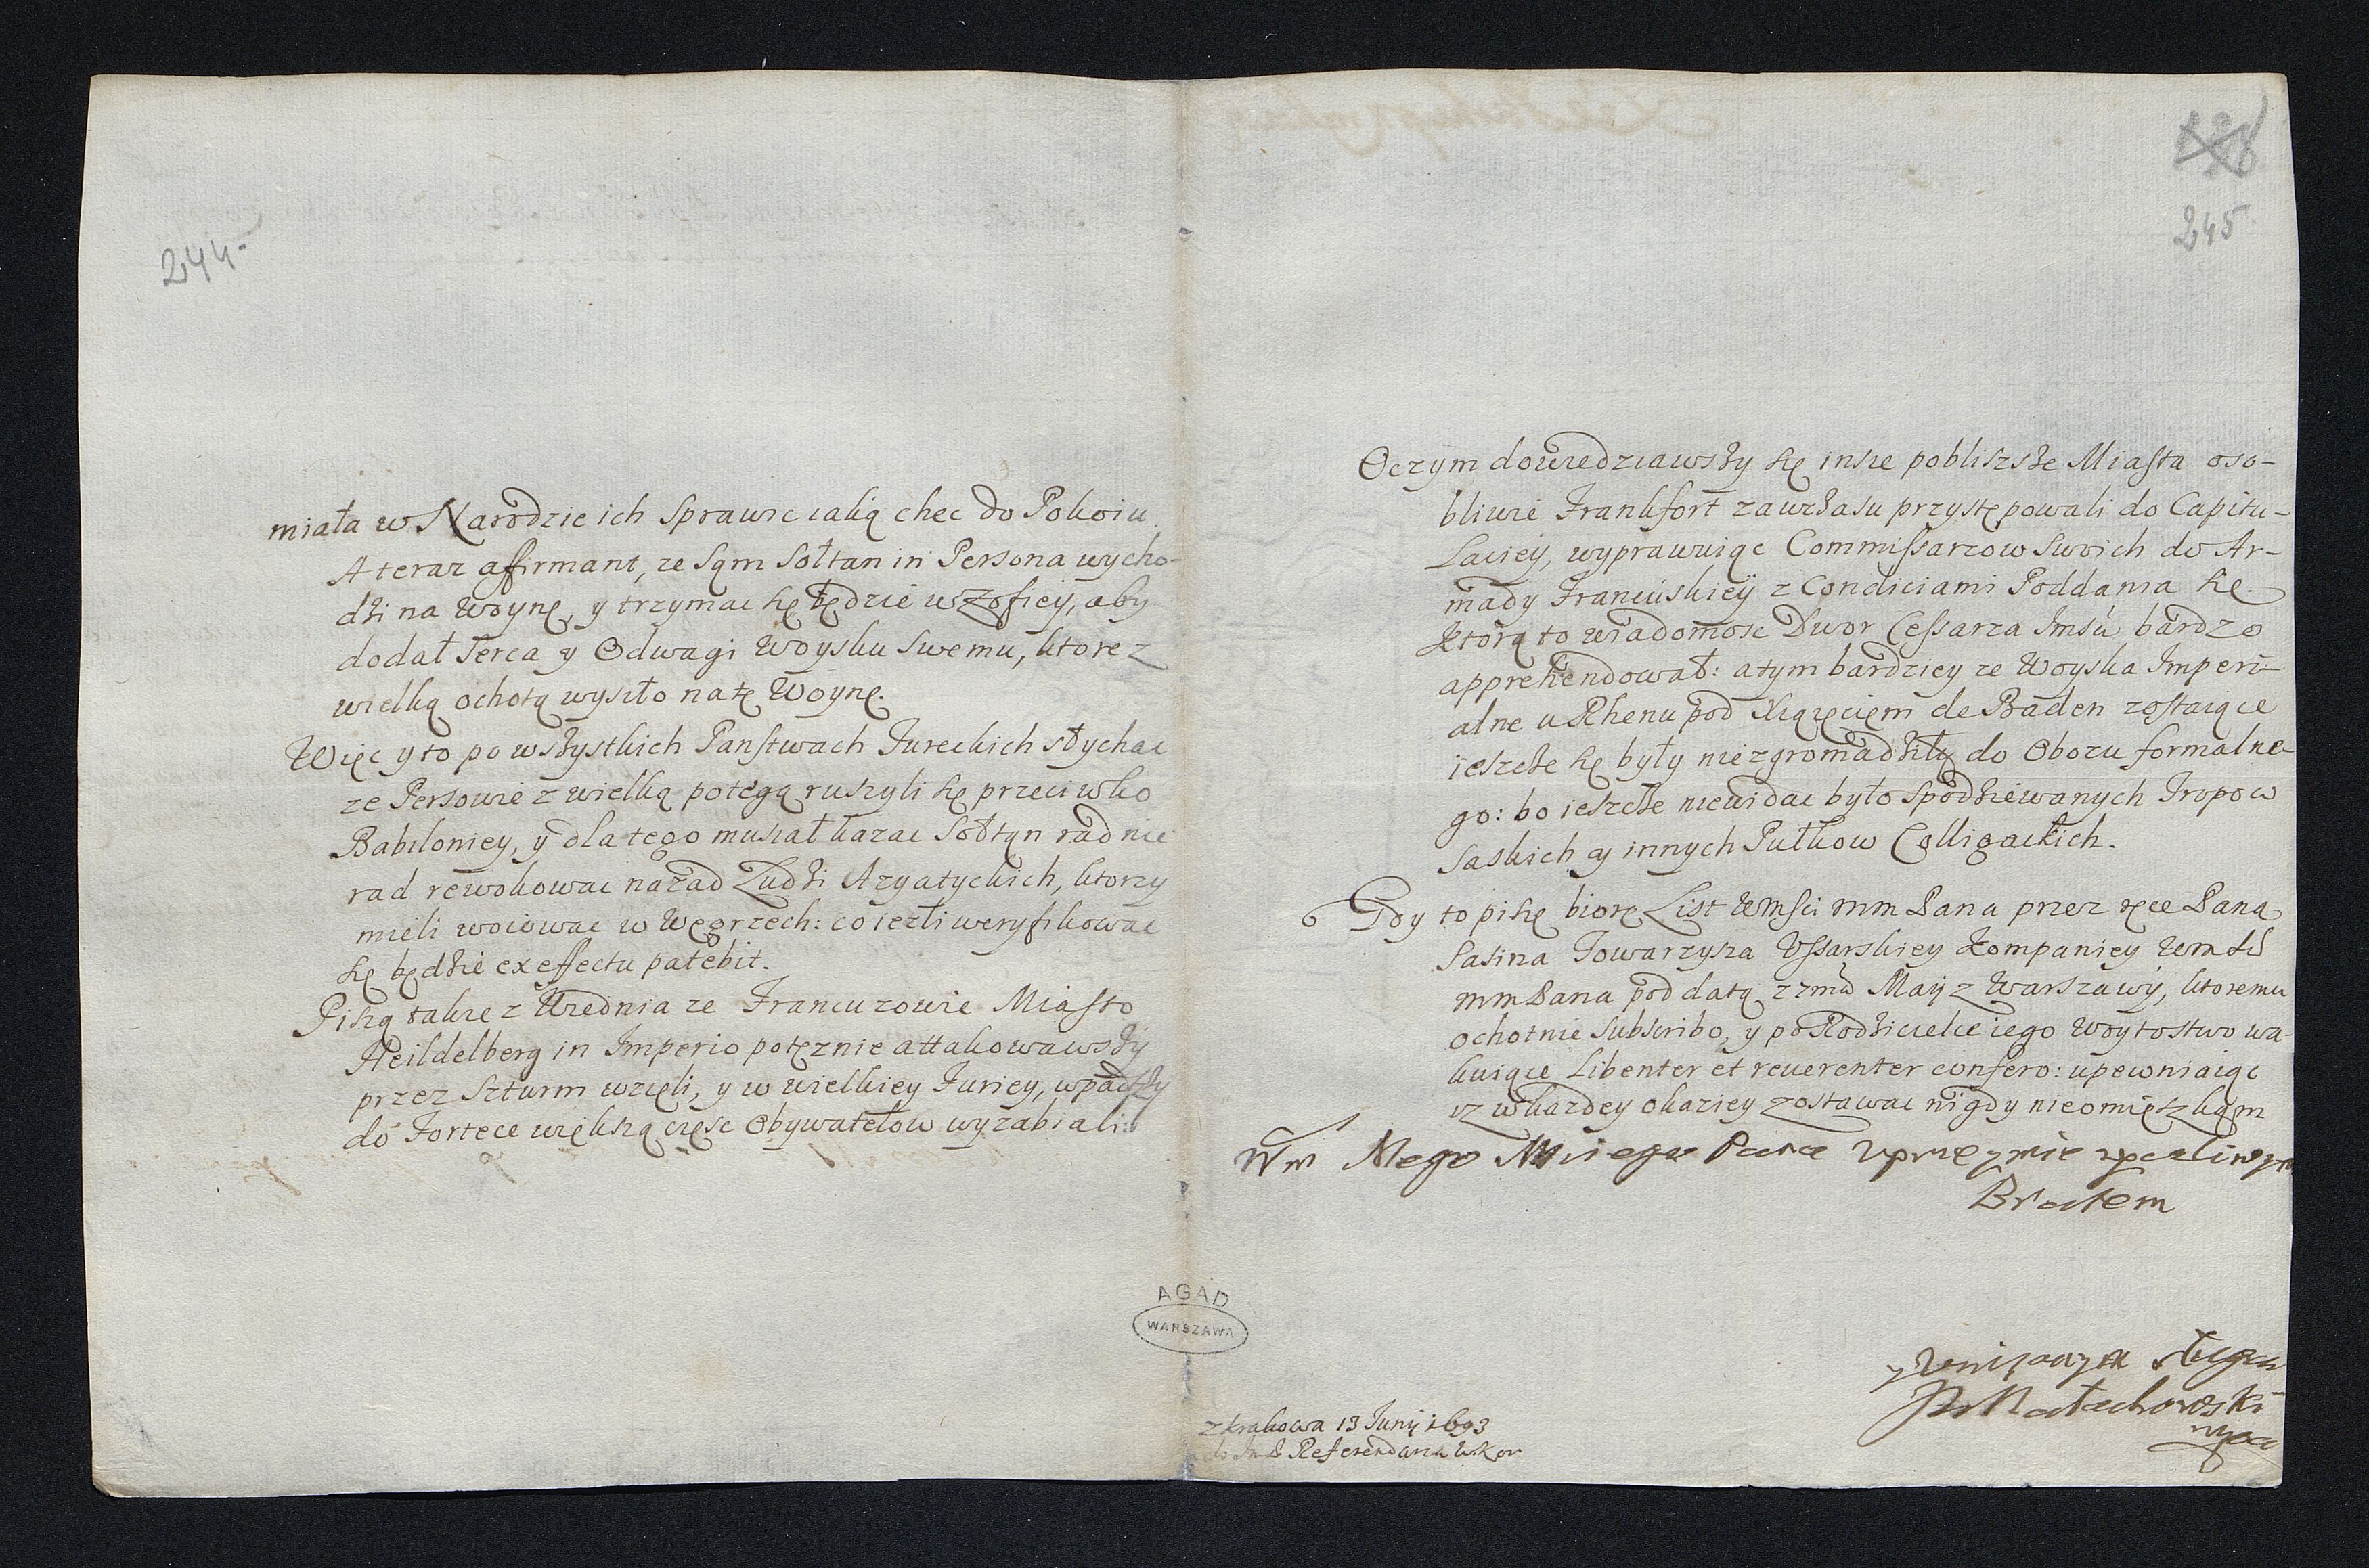 244.
miała w Narodzie ich sprawic iaką chec do Pokoiu.
A teraz affirmant, ze sąm Sołtan in Persona wycho-
dźi na Woynę, y trzymac się będzie w Zofiey, aby
dodał serca y Odwagi Woysku swemu, ktore z
wielką ochotą wyszło na tę Woynę.
Więc y to po wszystkich Panstwach Tureckich słychac
ze Persowie z wielką potegą ruszyli się przeciwko
Babiloniey, y dla tego musiał kazac Sołtąn rad nie
rad rewokowac nazad Ludźi Azyatyckich, ktorzy
mieli woiowac w Węgrzech: co iezli weryfikowac
się będźie ex effectu patebit.
Piszą takze z Wiednia ze Francuzowie Miasto
Heildelberg in Imperio potęznie attakowawszy
przez Szturm wzięli, y w wielkiey Furiey, wpadszy
do Fortece większą częsc Obywatelow wyrabiali:
128
245
O czym dowiedziawszy się insze pobliszsze Miasta oso-
bliwie Frankfort zawczasu przystępowali do Capitu-
laciey, wyprawuiąc Commissarzow swoich do Ar-
mady Francuskiey z Condiciami Poddania się.
Ktorą to wiadomosc Dwor Cessarza Imści bardzo
apprehendował: a tym bardziey ze Woyska Imperi-
alne u Rhenu pod Xiązęciem de Baden zostaiące
ieszcze się były niezgromadźiły do Obozu formalne-
go: bo ieszcze niewidac było spodźiewanych Tropow
Saskich y innych Pułkow Colligackich.
Gdy to piszę biorę List Wmści mm Pana przez ręce Pana
Sasina Towarzysza Vssarskiey Kompaniey
mm Pana pod datą 27ma Maij z Warszawy, ktoremu
ochotnie subscribo, y po Rodźicielce iego Woytostwo wa-
kuiące libenter et reuerenter confero: upewniaiąc
iz w kazdey okaziey zostawac nigdy nieomięszkąm
Wm Mego Miego Pana Vprzeymie zyczliwym
Bratem
y Vnizonym sługą
Małachowski
mpa
z Krakowa 13 Junij 1693
do Referendarza W. Kor
AGAD
WARSZAWA